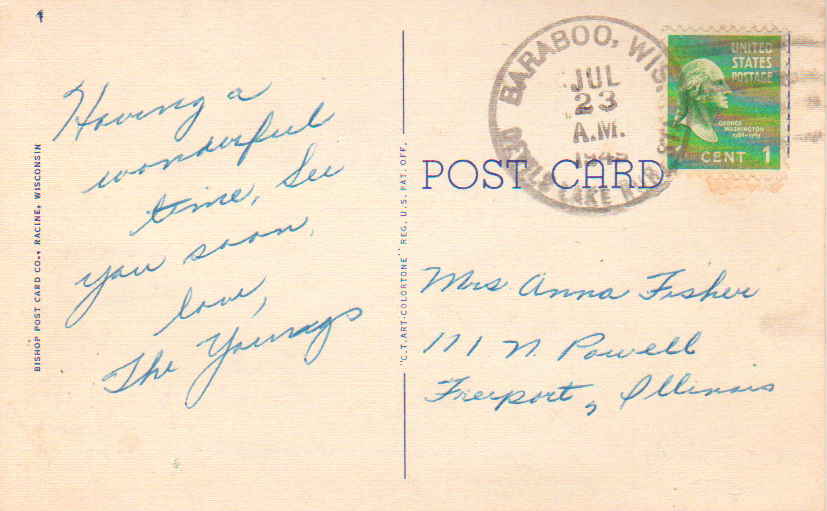 Having a
wonderful
time, See
you soon,
love,
The Youngs
BISHOP POST CARD CO., RACINE, WISCONSIN
"C.T. ART-COLORTONE" REG. U.S. PAT. OFF.
BARABOO, WIS.
JUL
23
A.M.
DEVILS LAKE RUR. STA.
UNITED
STATES
POSTAGE
GEORGE
WASHINGTON
CENT 1
POST CARD
Mrs Anna Fisher
111 N. Powell
Freeport, Illinois